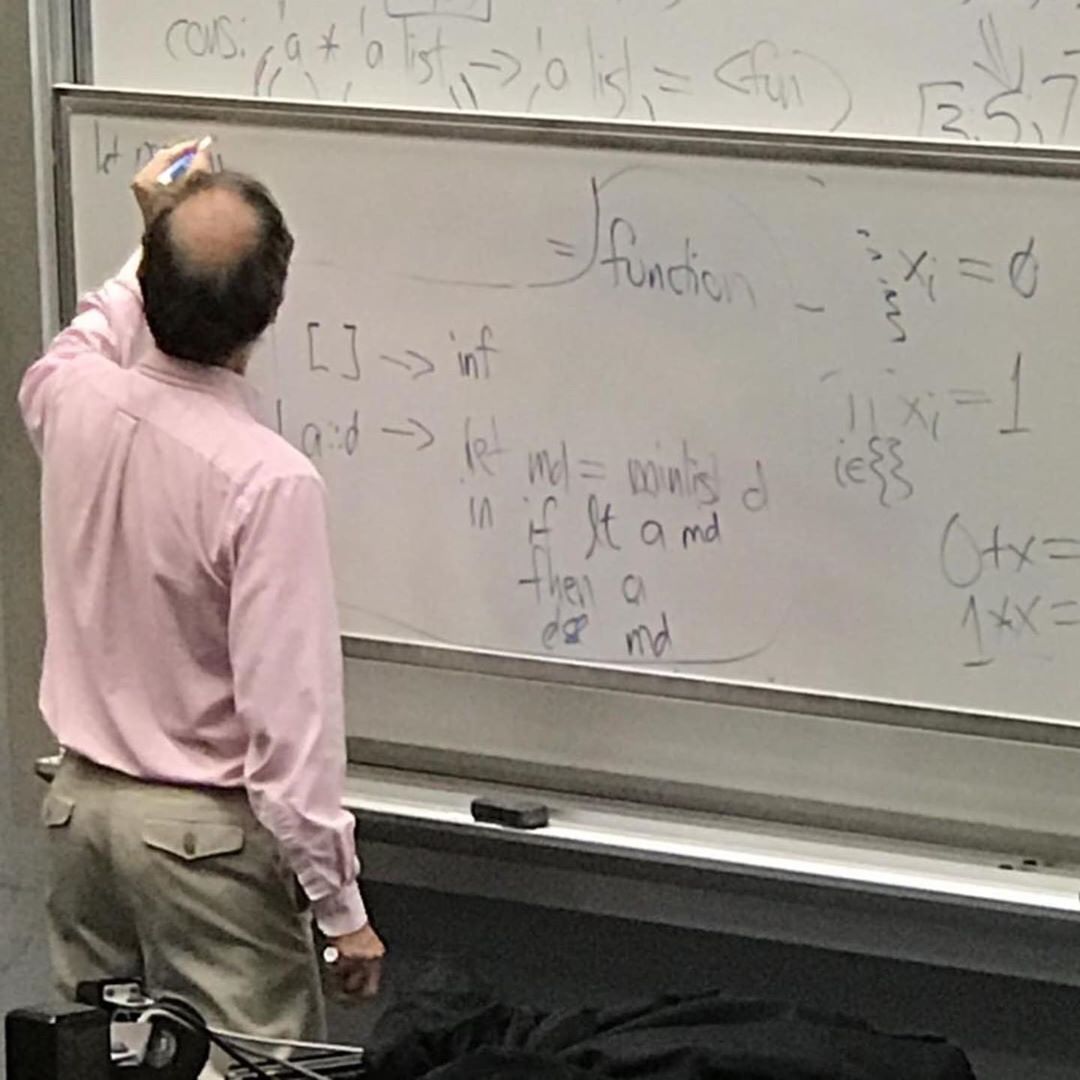 cons: 'a * 'a list -> 'a list = <fun>
[3;5;7
let
= function
[] -> inf
| a::d -> let md = minlist d
in if lt a md
then a
else md
xᵢ = 0
xᵢ = 1
i∈{}
0+x=
1*x=